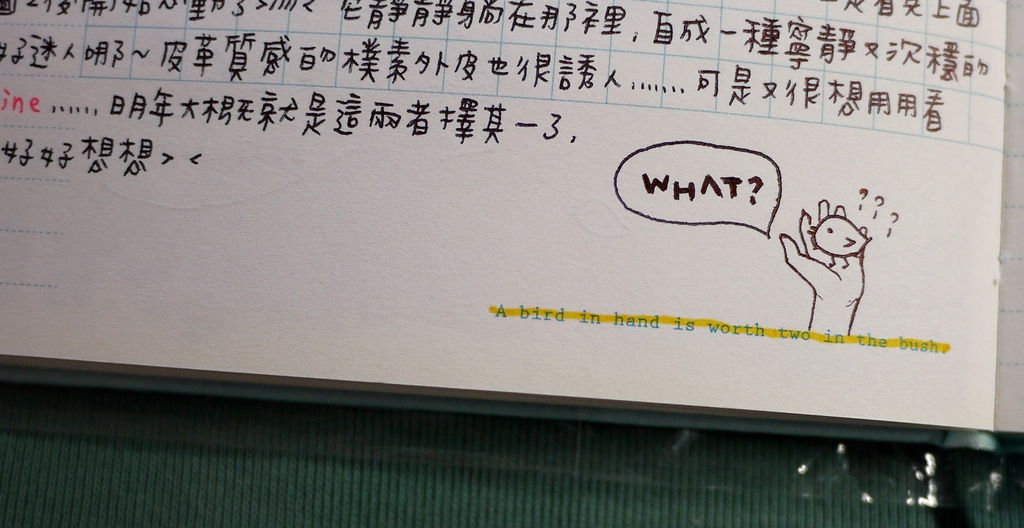 它靜靜身尚在那裡,自成一種寧靜又沉穩的
好迷人哪~皮革質感的樸素外皮也很誘人……可是又很想用用看
ine……明年大概就是這兩者擇其一了,
好好想想> <
WHAT?
???
A bird in hand is worth two in the bush.